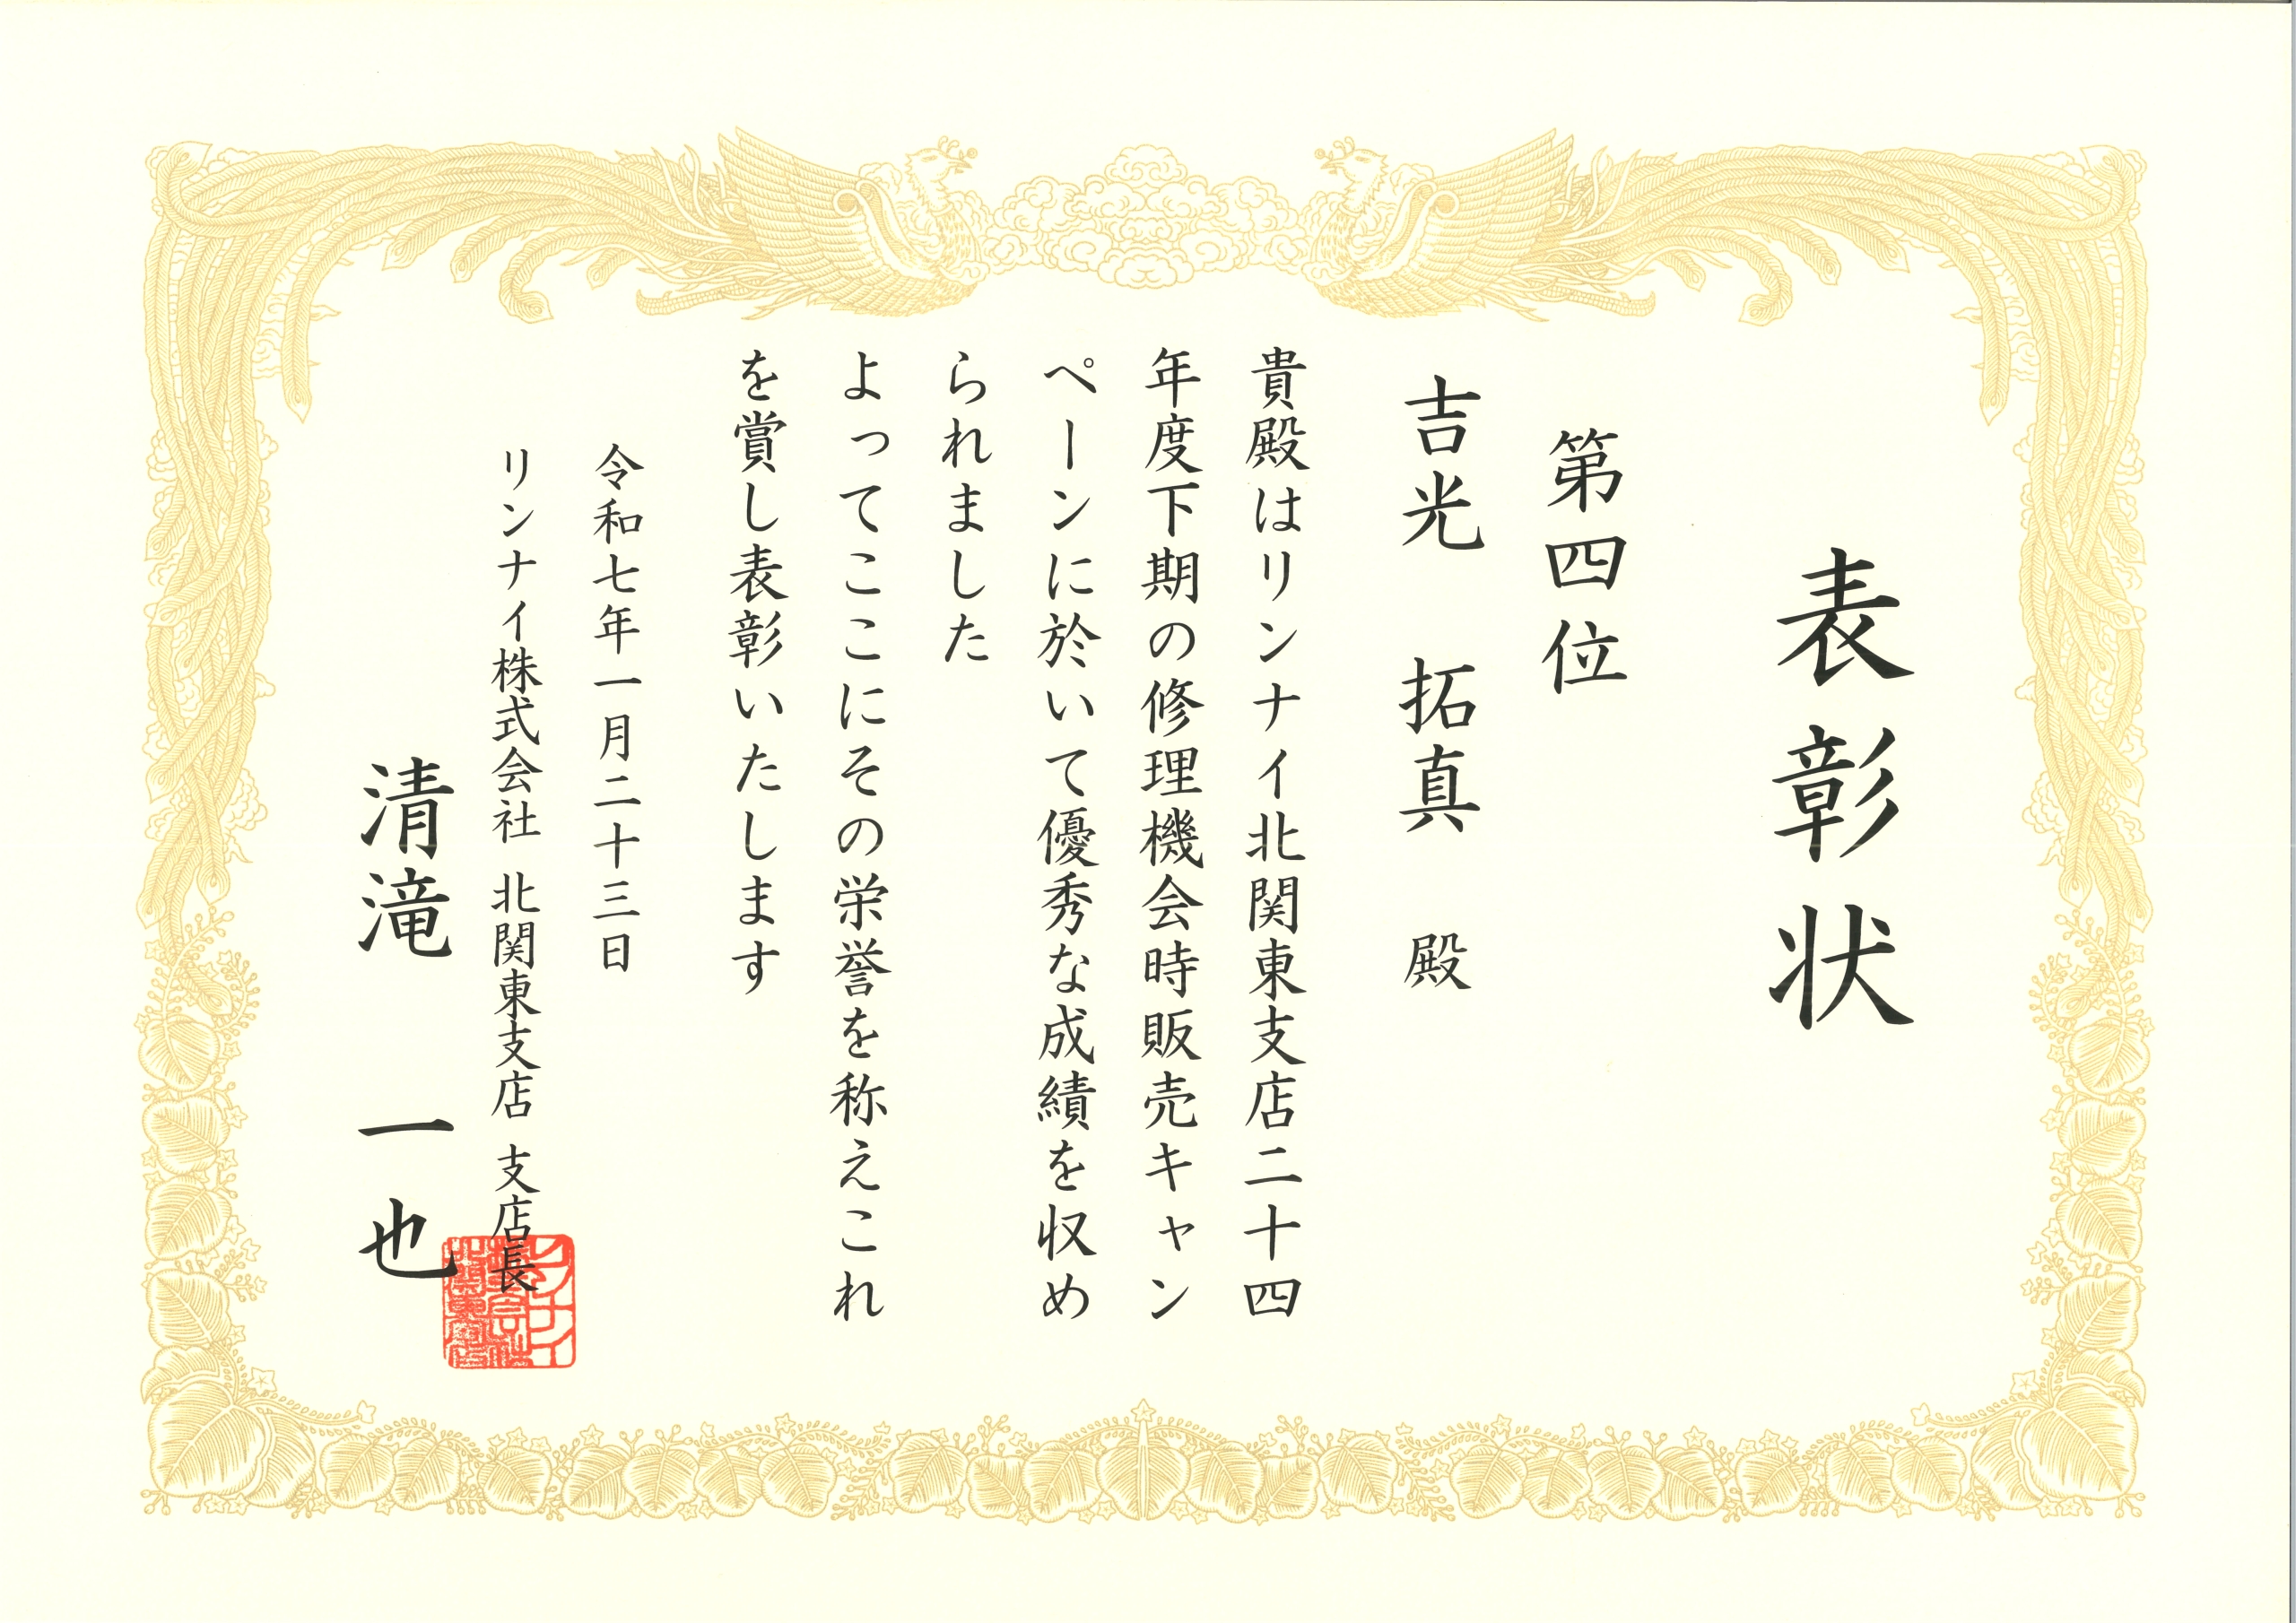 表彰状
第四位
吉光 拓真 殿
貴殿はリンナイ北関東支店二十四
年度下期の修理機会時販売キャン
ペーンに於いて優秀な成績を収め
られました
よってここにその栄誉を称えこれ
を賞し表彰いたします
令和七年一月二十三日
リンナイ株式会社 北関東支店 支店長
清滝 一也
リンナイ
株式会社
北関東支店